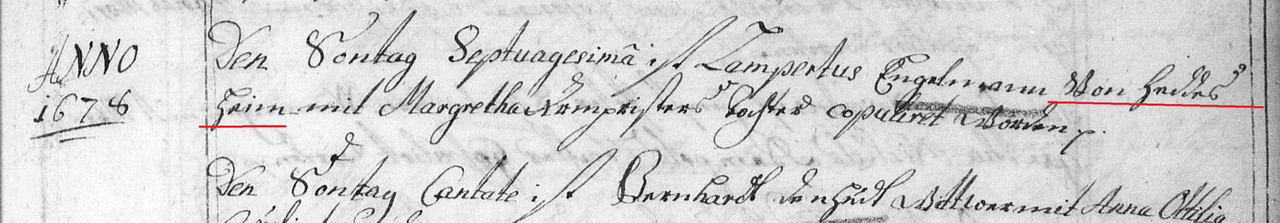 ANNO
1678
Den Sontag Septuagesimã ist Lampertus Engelmann Von Heddes
heim mit Margretha tochter copuliret Worden
Den Sontag Cantate ist Bernhardt Wittwer mit Anna Ottilia